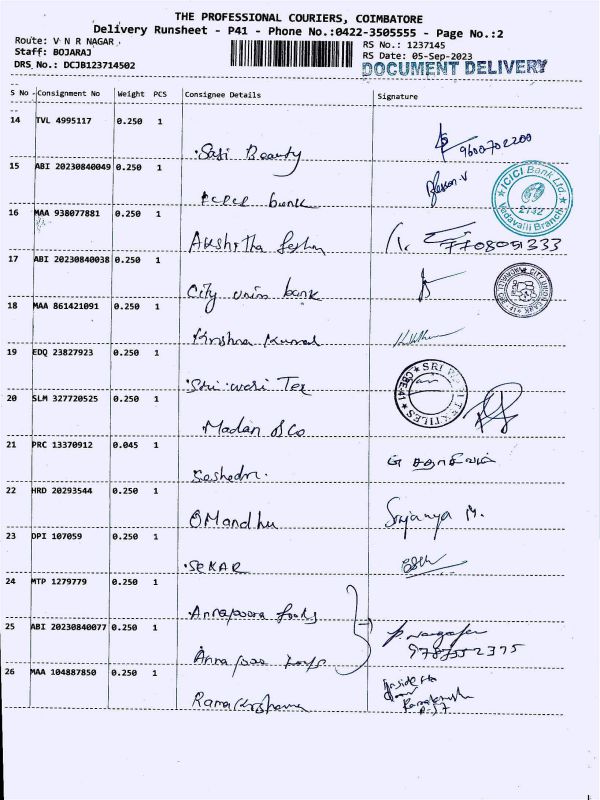 THE PROFESSIONAL COURIERS, COIMBATORE
Delivery Runsheet - P41 - Phone No.:0422-3505555 - Page No.:2
Route: V N R NAGAR
RS No.: 1237145
Staff: BOJARAJ
RS Date: 05-Sep-2023
DRS No.: DCJB123714502
DOCUMENT DELIVERY
S No Consignment No Weight PCS Consignee Details Signature
14 TVL 4995117 0.250 1
Sasi Beauty 9600702200
15 ABI 20230840049 0.250 1
bank
ICICI Bank Ltd. Vedavalli Branch
16 MAA 938077881 0.250 1
Akshitha 7708091333
17 ABI 20230840038 0.250 1
City union bank
18 MAA 861421091 0.250 1
Krishna Kumar
19 EDQ 23827923 0.250 1
Sri wari Tex
SRI TEXTILES CBE-41
20 SLM 327720525 0.250 1
Madan & Co
21 PRC 13370912 0.045 1
Seshadri சதாசிவம்
22 HRD 20293544 0.250 1
Mandhu Srijanya M.
23 DPI 107059 0.250 1
SEKAR
24 MTP 1279779 0.250 1
Annapoora foods
25 ABI 20230840077 0.250 1
P. Nagaraj
Annapoo
9787552375
26 MAA 104887850 0.250 1
Ramakrishana
door